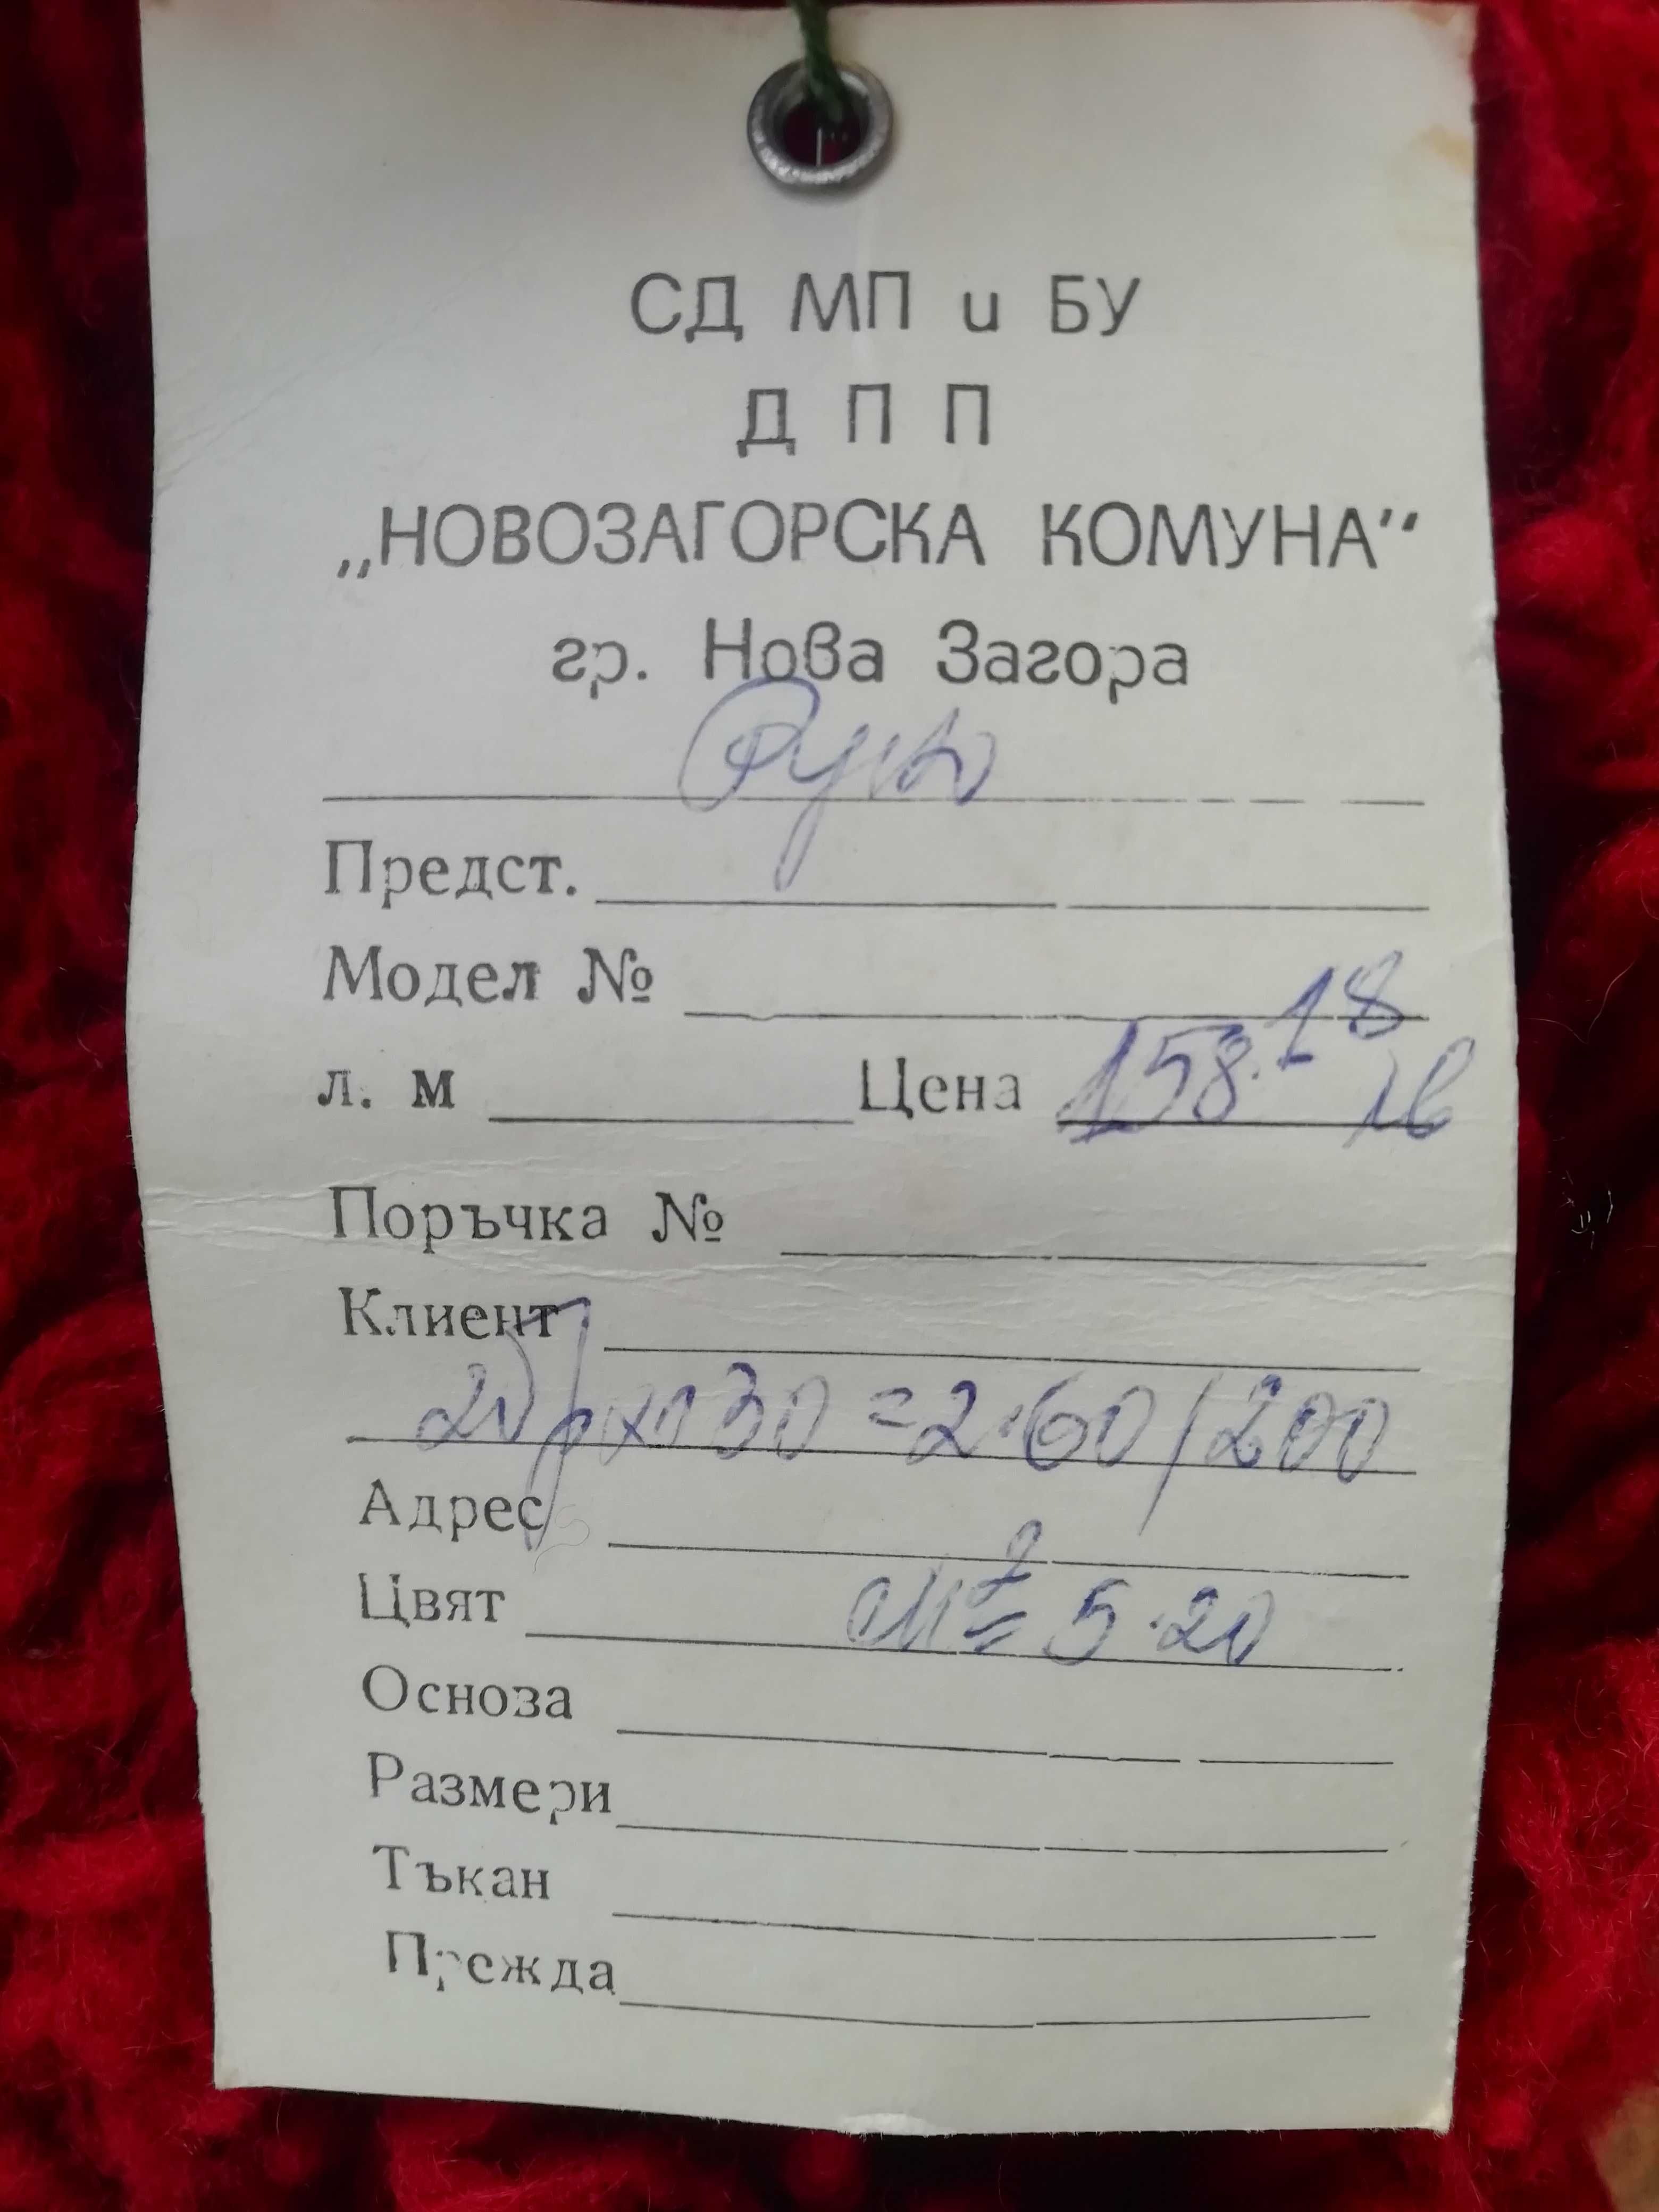 СД МП и БУ
Д П П
„НОВОЗАГОРСКА КОМУНА"
гр. Нова Загора
Предст.
Модел №
л. м Цена 158.18 лв
Поръчка №
Клиент
2бр х 130 = 2.60/200
Адрес
Цвят м² = 5.20
Основа
Размери
Тъкан
Прежда